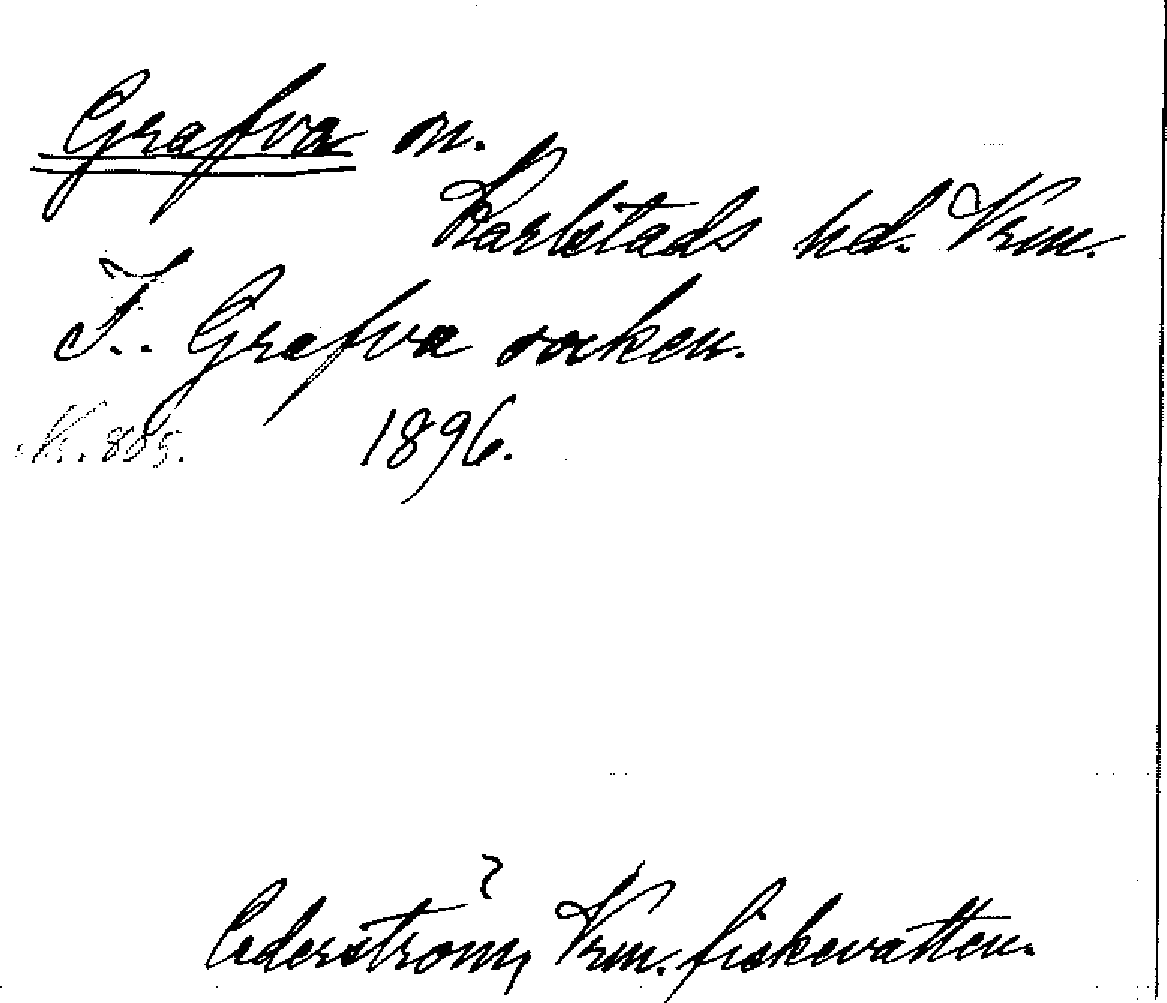 Grafva sn.
Karlstads hd. Vrm.
I.. Grafva socken.
1896.
Cederström, Vrm. fiskevatten.